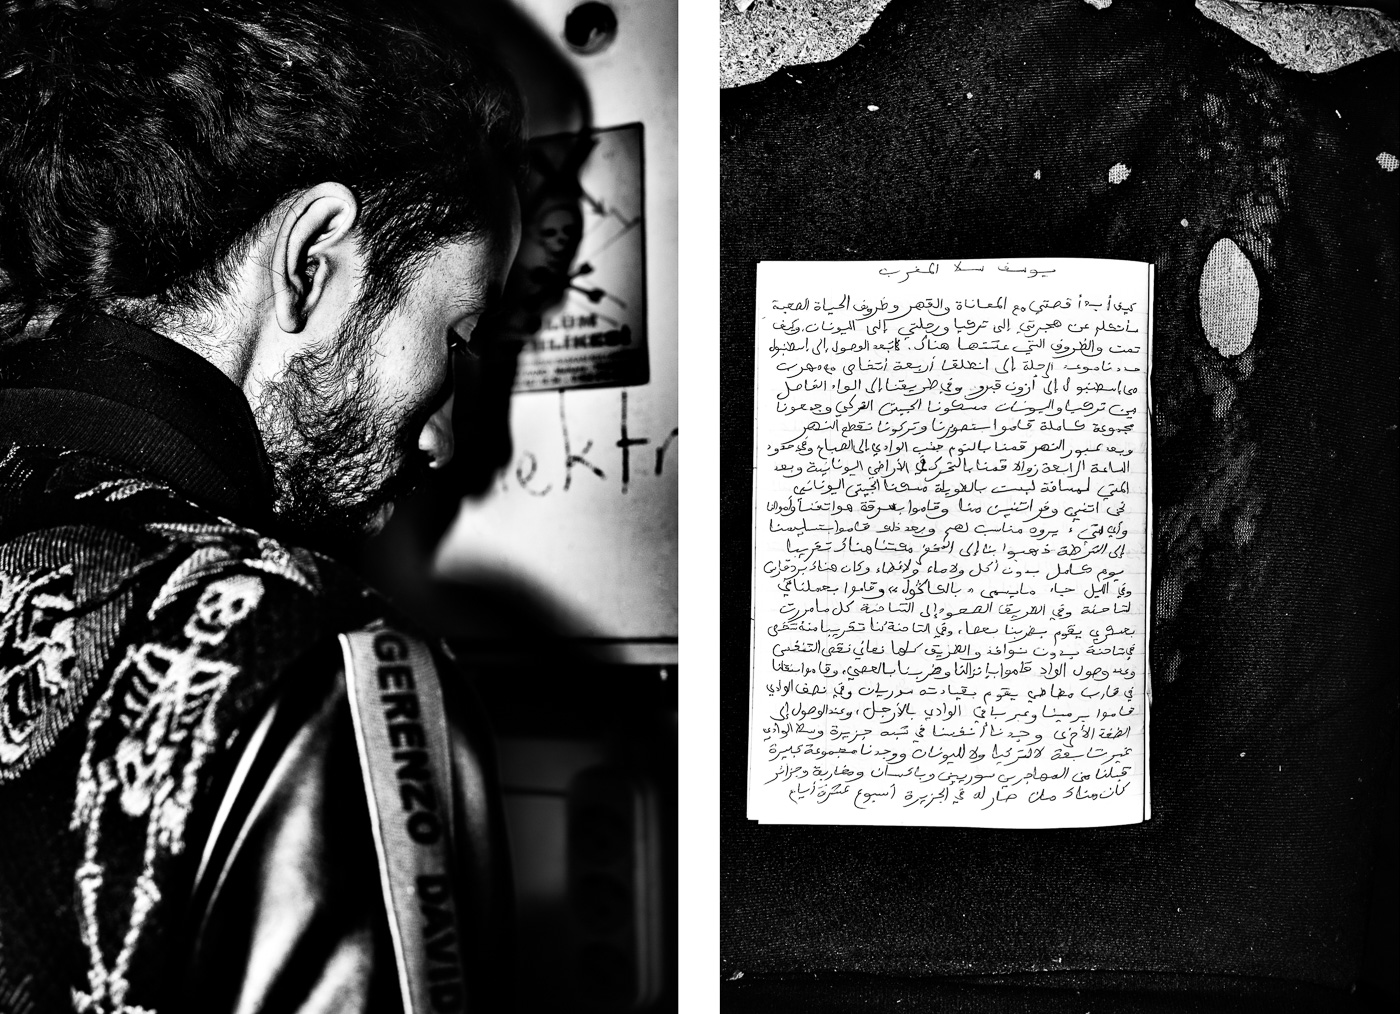 ÖLÜM
TEHLİKESİ
elektr
GERENZO DAVID
يوسف سلا المغرب
كيف أبدأ قصتي مع المعاناة والقهر وظروف الحياة الصعبة
سأتكلم عن هجرتي إلى تركيا ورحلتي إلى اليونان. وكيف
تمت والظروف التي عشتها هناك. بعد الوصول إلى إسطنبول
الرحلة إلى انطلقنا أربعة أشخاص
إسطنبول إلى أزون قبرو وفي طريقنا إلى الواد الفاصل
بين تركيا واليونان مسكونا الجيش التركي وجمعونا
مجموعة كاملة قاموا بتصويرنا وتركونا نقطع النهر
وبعد عبور النهر قمنا بالنوم جنب الوادي إلى الصباح وفي حدود
الساعة الرابعة زوالا قمنا بالتحرك في الأراضي اليونانية وبعد
المشي لمسافة ليست بالطويلة مسكنا الجيش اليوناني
نحن اثنين وفر اثنين منا وقاموا بسرقة هواتفنا وأموالنا
وأي شيء يروه مناسب لهم وبعد ذلك قاموا بتسليمنا
إلى الشرطة ذهبوا بنا إلى مكثنا هناك تقريبا
يوم كامل بدون أكل ولا ماء ولا غطاء وكان هناك برد قارس
وفي الليل جاء ما يسمى "بالكوماندو" وقاموا بحملنا في
شاحنة وفي الطريق الصعود إلى الشاحنة كل ما مررت
بعسكري يقوم بضربنا بعصا، وفي الشاحنة كنا تقريبا مئة شخص
في شاحنة بدون نوافذ والطريق كلها نعاني نقص التنفس
وعند وصول الواد قاموا بإنزالنا وضربنا بالعصي، وقاموا بنقلنا
في قارب مطاطي يقوم بقيادته سوريان وفي نصف الوادي
قاموا برمينا وعبرنا باقي الوادي بالأرجل، وعند الوصول إلى
الضفة الأخرى وجدنا أنفسنا في شبه جزيرة وسط الوادي
غير تابعة لا لتركيا ولا لليونان ووجدنا مجموعة كبيرة
قبلنا من المهاجرين سوريين وباكستان ومغاربة وجزائر
كان هناك من صار له في الجزيرة أسبوع عشرة أيام